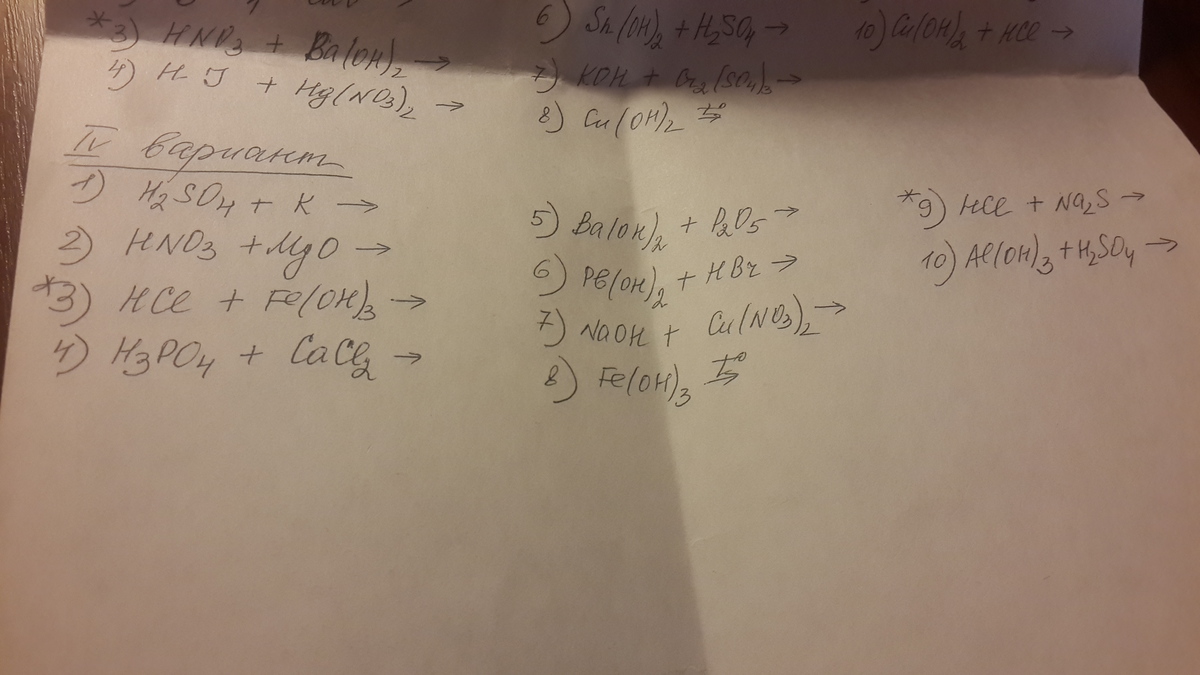 *3) HNO3 + Ba(OH)2 →
4) H J + Hg(NO3)2 →
6) Sn(OH)2 + H2SO4 →
7) KOH + Cr2(SO4)3 →
8) Cu(OH)2 t°→
10) Cu(OH)2 + HCl →
IV вариант
1) H2SO4 + K →
2) HNO3 + MgO →
*3) HCl + Fe(OH)3 →
4) H3PO4 + CaCl2 →
5) Ba(OH)2 + P2O5 →
6) Pb(OH)2 + HBr →
7) NaOH + Cu(NO3)2 →
8) Fe(OH)3 t°→
*9) HCl + Na2S →
10) Al(OH)3 + H2SO4 →